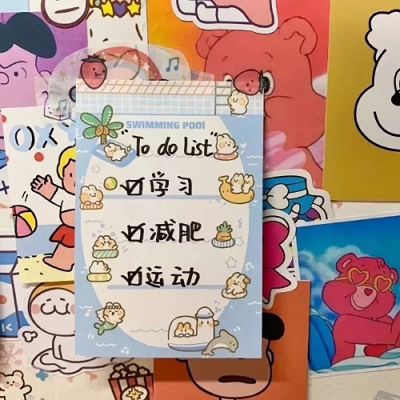 SWIMMING POOl
"To do List"
☑学习
☑减肥
☑运动